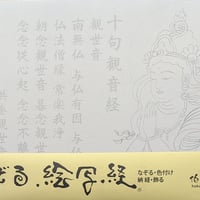 十句観音経
観世音
南無仏 与仏有因 与
仏法僧縁 常楽我浄
朝念観世音 暮念観
念念従心起 念念不離
ぞる、絵写経
なぞる・色付け
納経・飾る